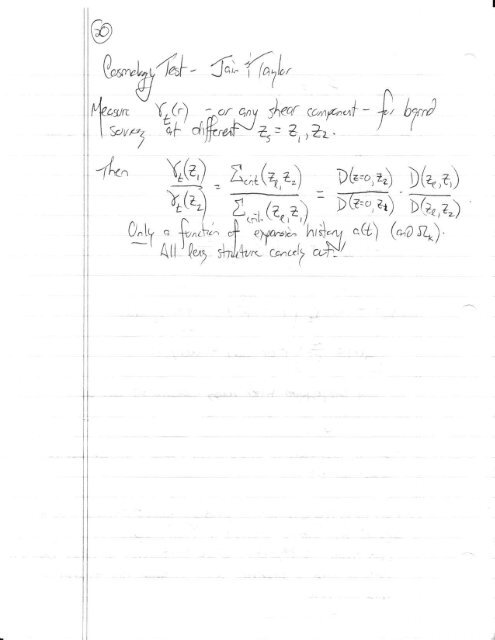 20
Cosmology Test - Jain & Taylor
Measure γ_t(r) - or any shear component - for bgrnd
sources at different z_s = z_1, z_2.
Then γ_t(z_1)/γ_t(z_2) = Σ_crit(z_l, z_2)/Σ_crit(z_l, z_1) = D(z=0, z_2)/D(z=0, z_1) · D(z_l, z_1)/D(z_l, z_2)
Only a function of expansion history a(t) (and Ω_k).
All lens structure cancels out!